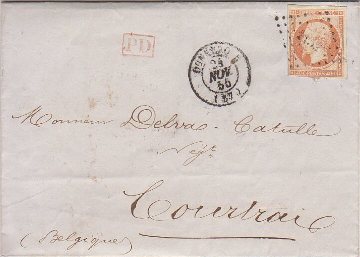 PD
NOV.
Monsieur Delva-Catulle
Négt
Courtrai
(Belgique)